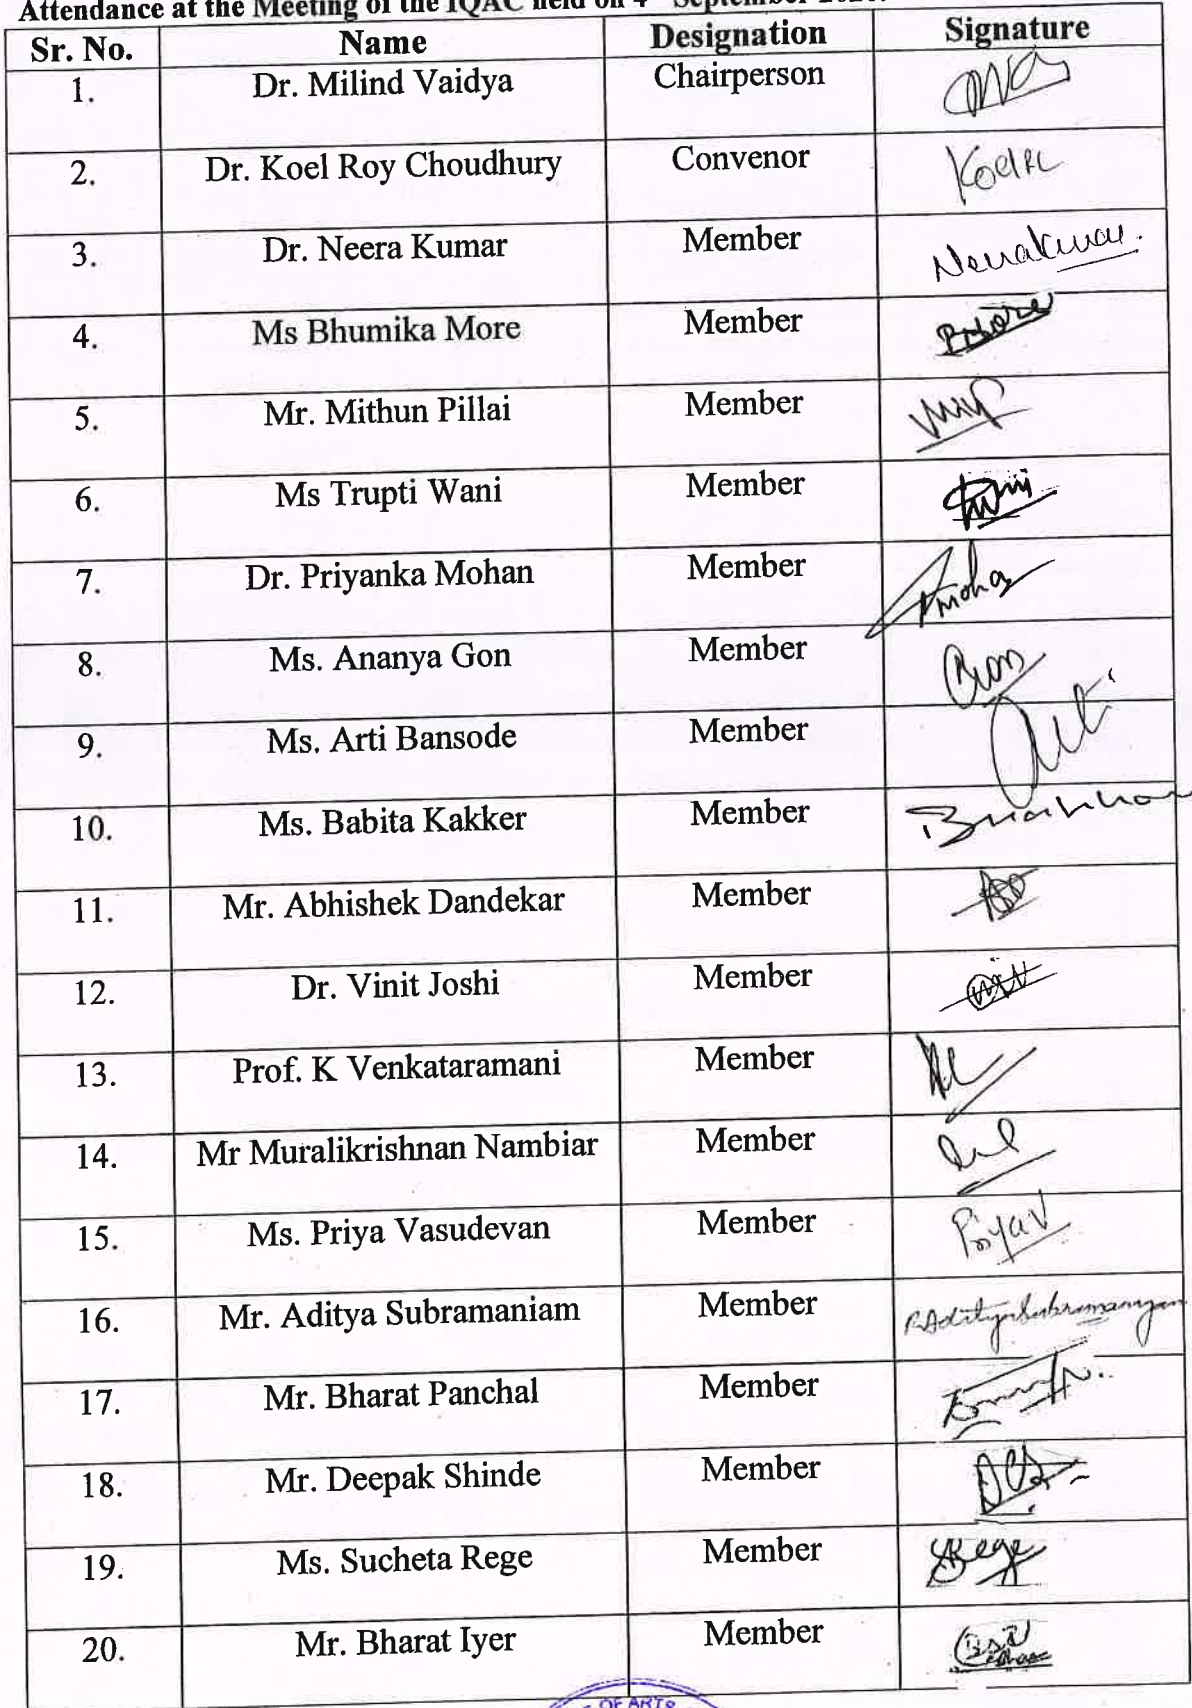 Attendance at the Meeting of the IQAC held on 4 September
Sr. No. Name Designation Signature
1. Dr. Milind Vaidya Chairperson
2. Dr. Koel Roy Choudhury Convenor
3. Dr. Neera Kumar Member Neerakumar.
4. Ms Bhumika More Member
5. Mr. Mithun Pillai Member
6. Ms Trupti Wani Member
7. Dr. Priyanka Mohan Member
8. Ms. Ananya Gon Member
9. Ms. Arti Bansode Member
10. Ms. Babita Kakker Member
11. Mr. Abhishek Dandekar Member
12. Dr. Vinit Joshi Member
13. Prof. K Venkataramani Member
14. Mr Muralikrishnan Nambiar Member
15. Ms. Priya Vasudevan Member PriyaV
16. Mr. Aditya Subramaniam Member
17. Mr. Bharat Panchal Member
18. Mr. Deepak Shinde Member
19. Ms. Sucheta Rege Member
20. Mr. Bharat Iyer Member
OF ARTS